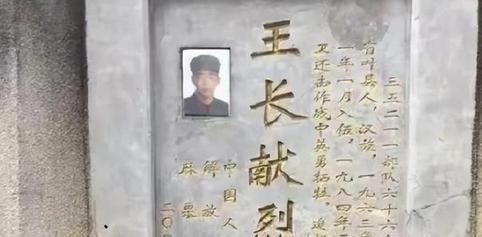 三五二一一部队六十六
省叶县人，汉族，一九六三
一年一月入伍，一九八四年
卫还击作战中英勇牺牲，追
王长献烈
中国人
解放
麻栗
二〇